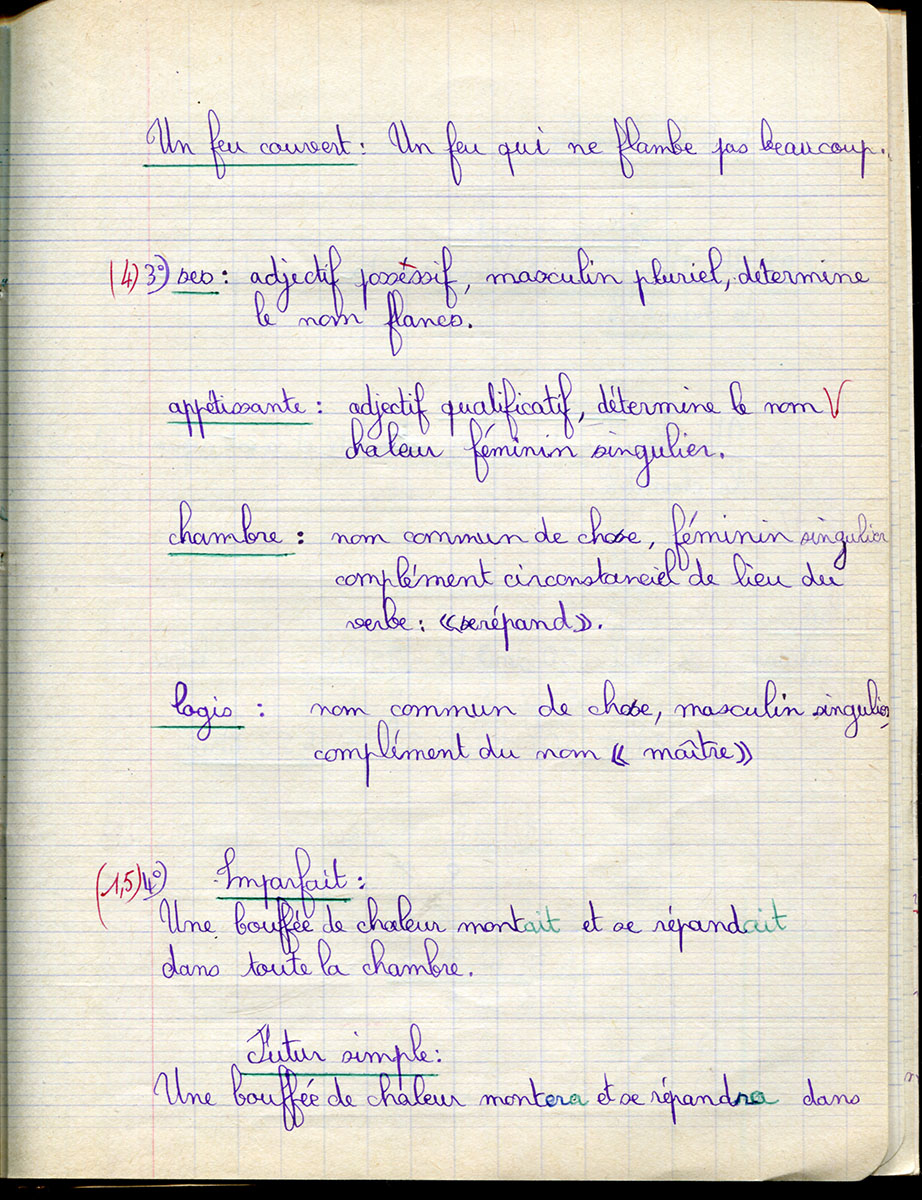 Un feu couvert : Un feu qui ne flambe pas beaucoup.
(4) 3°) ses : adjectif posséssif, masculin pluriel, détermine
le nom flancs.
appétissante : adjectif qualificatif, détermine le nom V
chaleur féminin singulier.
chambre : nom commun de chose, féminin singulier
complément circonstanciel de lieu du
verbe : «se répand».
logis : nom commun de chose, masculin singulier,
complément du nom « maître»
(1,5) 4°) Imparfait :
Une bouffée de chaleur montait et se répandait
dans toute la chambre.
Futur simple :
Une bouffée de chaleur montera et se répandra dans